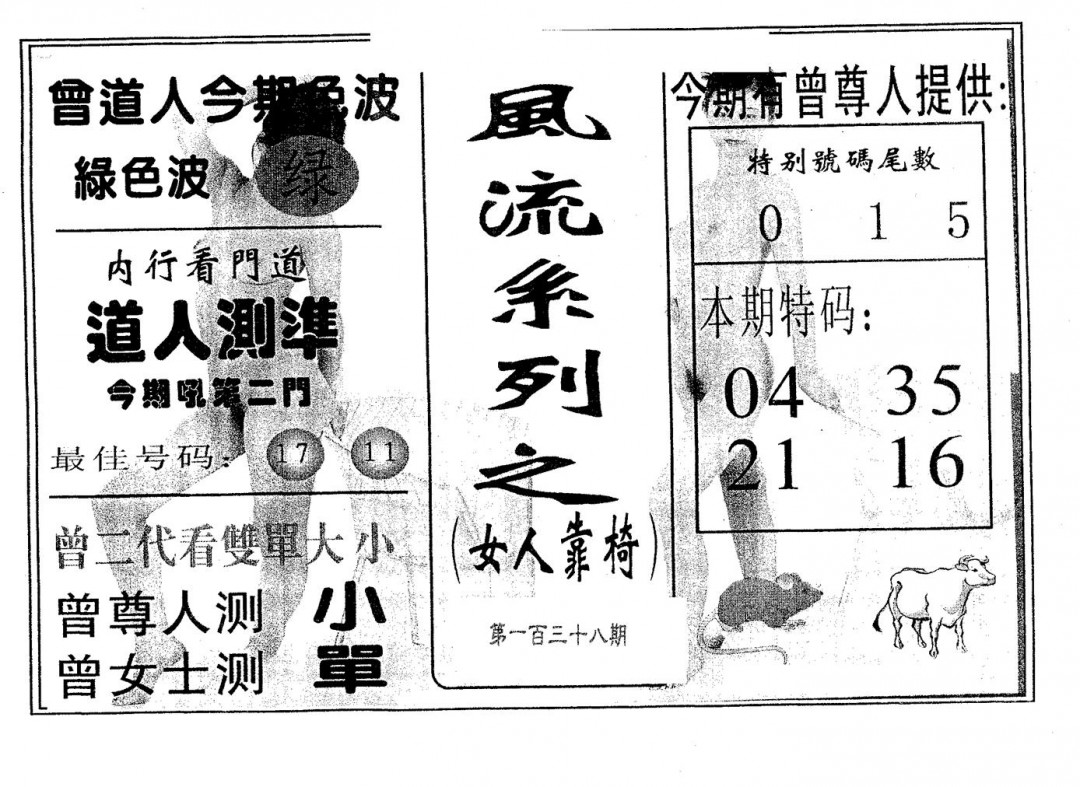 曾道人今期色波
綠色波 绿
内行看門道
道人測準
今期吼第二門
最佳号码: 17 11
曾二代看雙單大小
曾尊人测 小
曾女士测 單
風流系列之
(女人靠椅)
第一百三十八期
今期有曾尊人提供:
特别號碼尾數
0 1 5
本期特码:
04 35
21 16